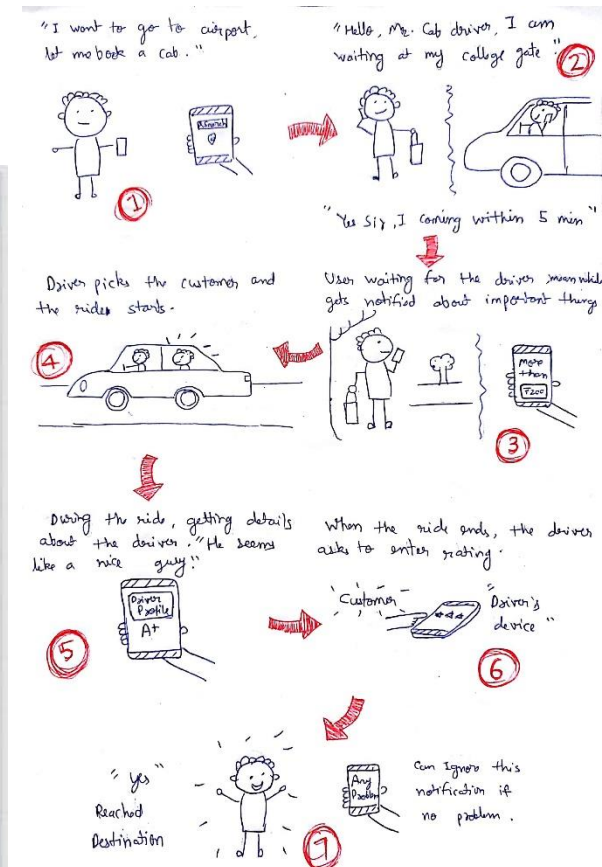 "I want to go to airport,
let me book a cab."
①
"Hello, Mr. Cab driver, I am
waiting at my college gate."
②
"Yes Sir, I coming within 5 min"
User waiting for the driver, meanwhile
gets notified about important things
More
than
₹200
③
Driver picks the customer and
the rides starts.
④
During the ride, getting details
about the driver. "He seems
like a nice guy!"
Driver
Profile
A+
⑤
When the ride ends, the driver
asks to enter rating.
Customer
"Driver's
device"
⑥
"Yes"
Reached
Destination
⑦
Any
Problem
Can Ignore this
notification if
no problem.